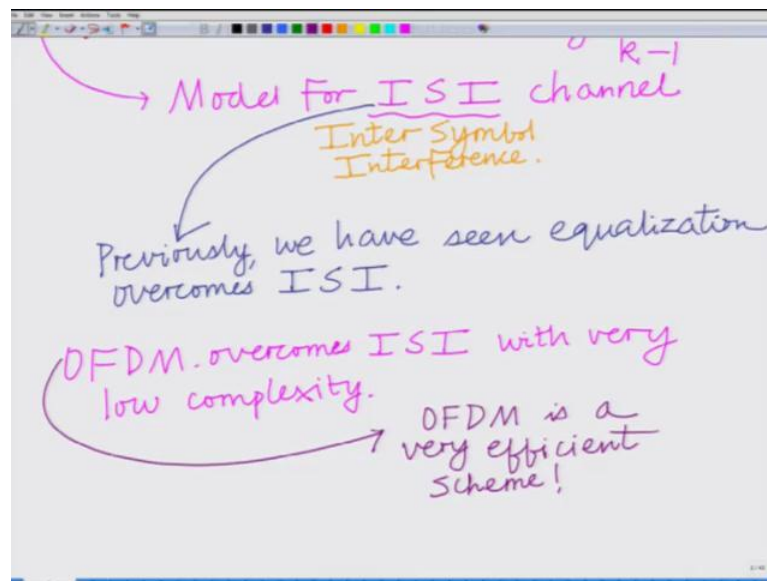 k-1
Model for ISI channel
Inter Symbol
Interference.
Previously, we have seen equalization
overcomes ISI.
OFDM. overcomes ISI with very
low complexity.
OFDM is a
very efficient
scheme!